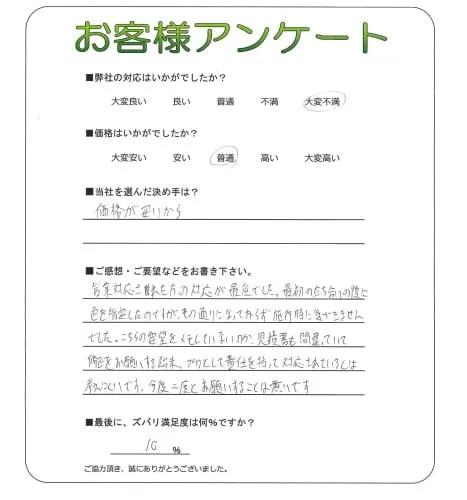 お客様アンケート
■弊社の対応はいかがでしたか？
大変良い 良い 普通 不満 大変不満
■価格はいかがでしたか？
大変安い 安い 普通 高い 大変高い
■当社を選んだ決め手は？
価格が安いから
■ご感想・ご要望などをお書き下さい。
営業対応された方の対応が最悪でした。最初の立ち会いの際に
色を指定したのですが、その通りになっておらず施行時に気づきません
でした。こちらの要望をメモしていないのか、見積書も間違っていて
修正をお願いする始末、プロとして責任を持って対応されているとは
思えにくいです。今後二度とお願いすることは無いです
■最後に、ズバリ満足度は何%ですか？
10 %
ご協力頂き、誠にありがとうございました。